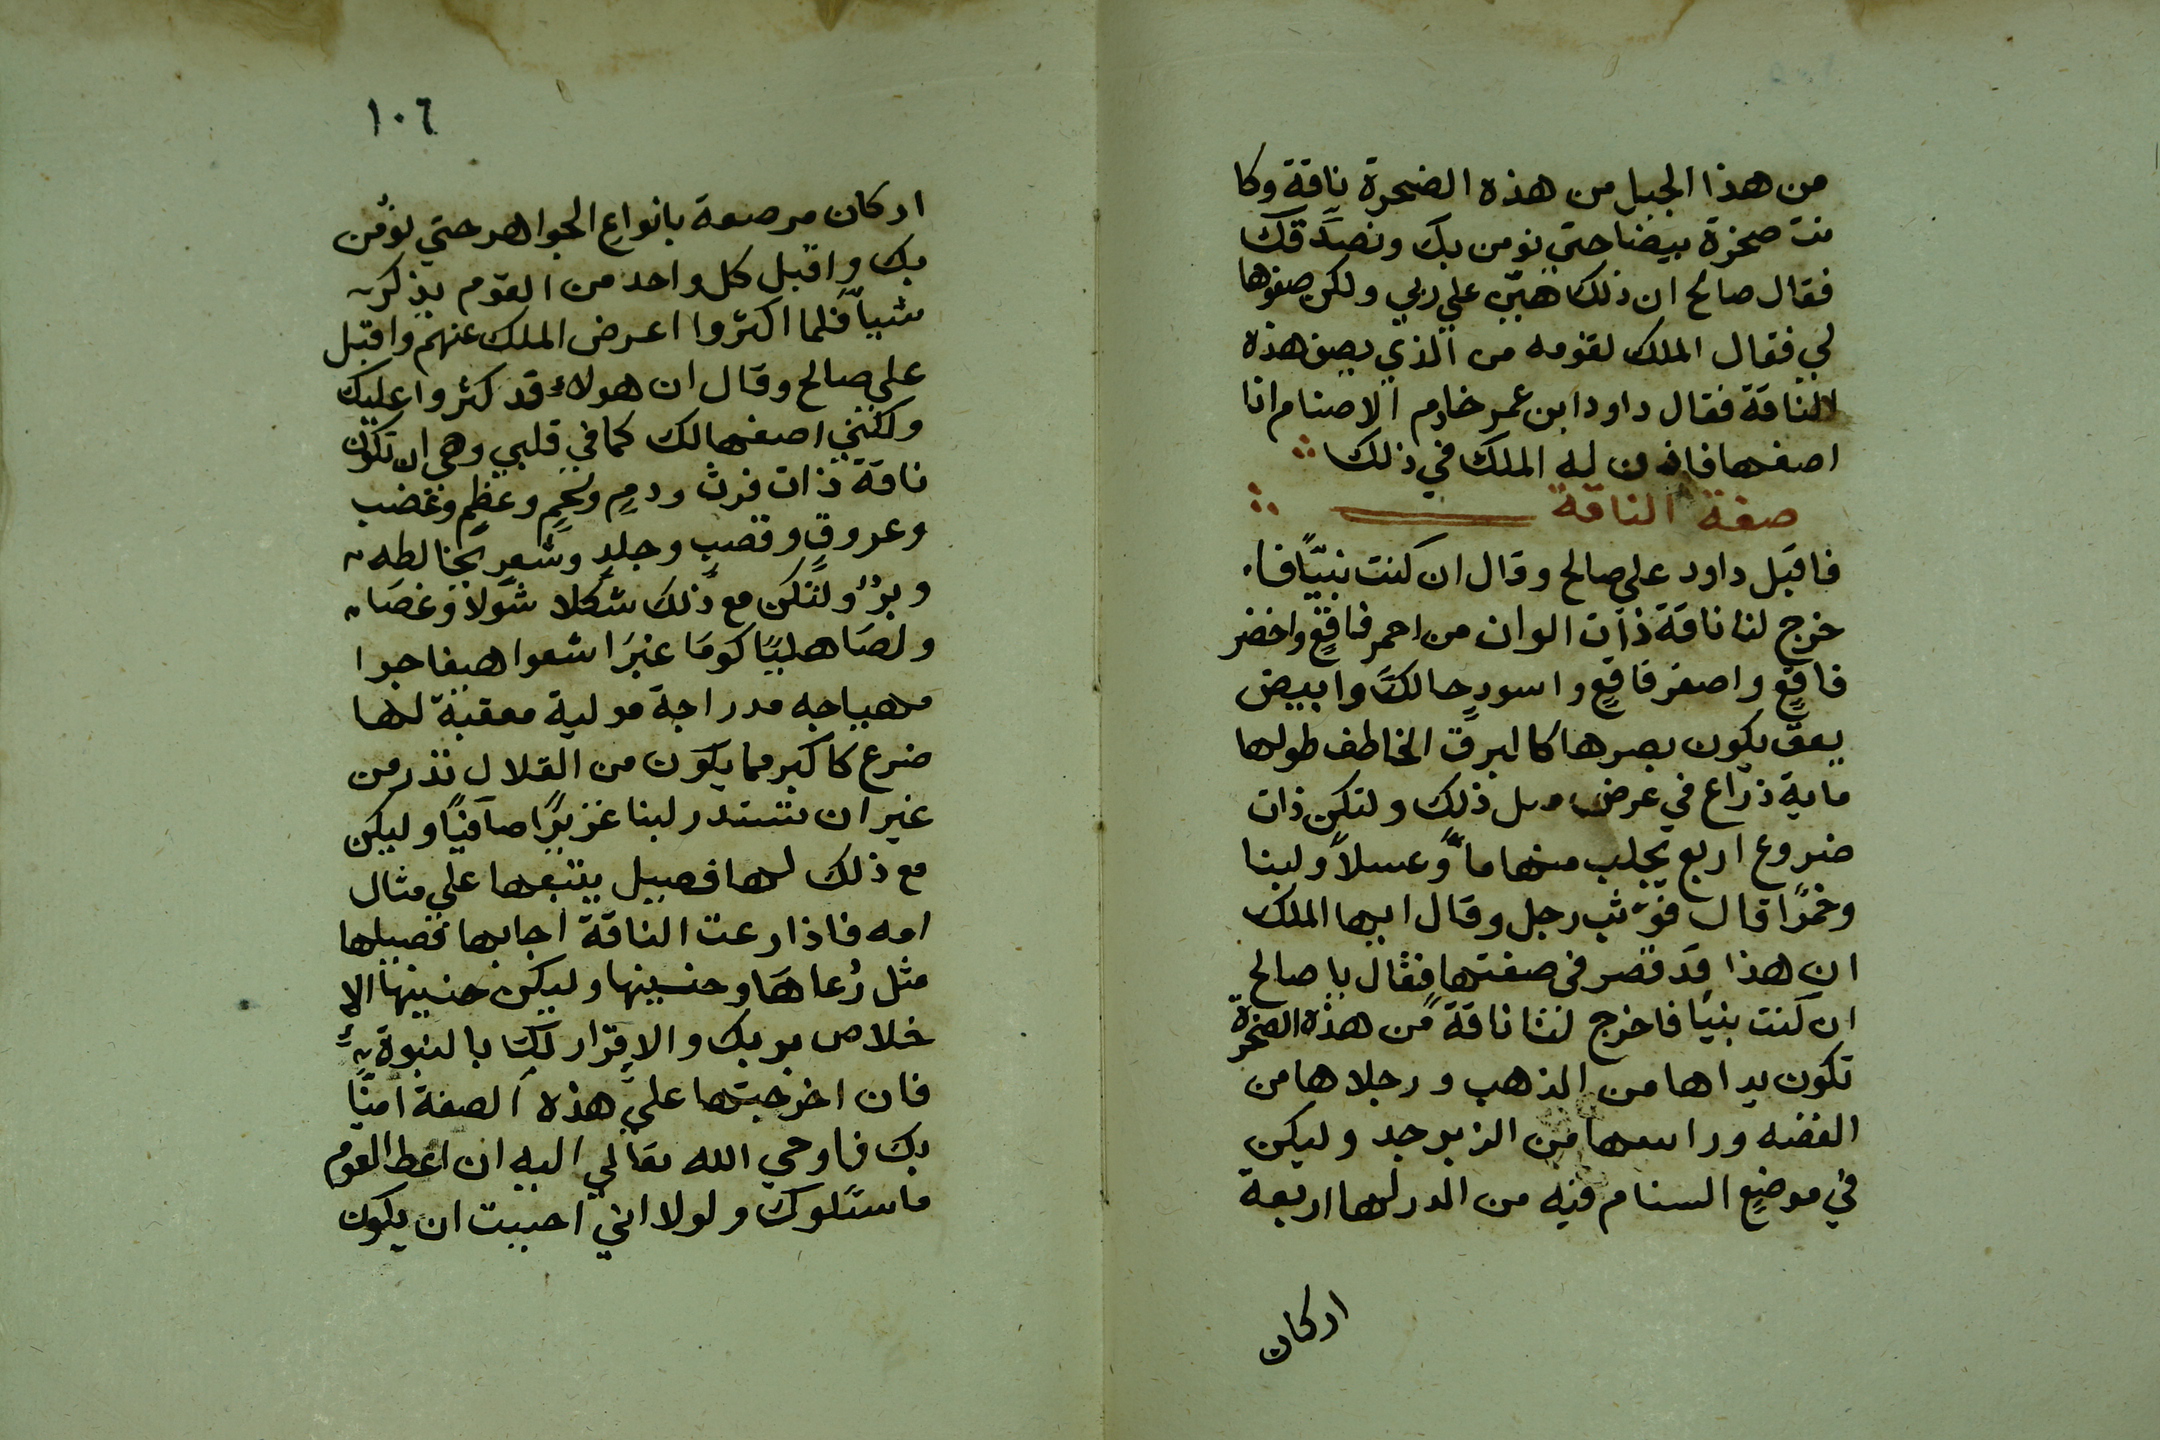 من هذا الجبل من هذه الصخرة ناقة وكا
نت صخرة بيضا حتي نومن بك ونصدقك
فقال صالح ان ذلك هين علي ربي ولكن صفوها
لي فقال الملك لقومه من الذي يصف هذه
الناقة فقال داود ابن عمر خادم الاصنام انا
اصفها فاذن له الملك في ذلك
صفة الناقة
فاقبل داود علي صالح وقال ان كنت نبيّاً فا
خرج لنا ناقة ذات الوان من احمر فاقعٍ واخضر
فاقعٍ واصفر فاقعٍ واسودٍ حالك وابيض
يقق يكون بصرها كالبرق الخاطف طولها
ماية ذراع في عرض مثل ذلك ولتكن ذات
ضروع اربع يحلب منها ماً وعسلاً ولبنا
وخمرًا قال فوثب رجل وقال ايها الملك
ان هذا قد قصر في صفتها فقال يا صالح
ان كنت نبيًا فاخرج لنا ناقة من هذه الصخرة
تكون يداها من الذهب ورجلاها من
الفضه وراسها من الزبرجد وليكن
في موضع السنام فيه من الدر لها اربعة
اركان
١٠٦
اركان مرصعة بانواع الجواهر حتي نومن
بك واقبل كل واحد من القوم يذكر
شياً فلما اكثروا اعرض الملك عنهم واقبل
علي صالح وقال ان هولاء قد كثروا عليك
ولكنني اصفها لك كما في قلبي وهي ان تكون
ناقة ذات فرث ودمٍ ولحمٍ وعظمٍ وغضب
وعروقٍ وقصبٍ وجلدٍ وشعرٍ يخالطه
وبر ولتكن مع ذلك شكلا شولا وغصا
ولصا هلبيًا كومَا عنبرَا شعوا هيفا جوا
مهياجه مدراجة مولية معقبة لها
ضرع كاكبر مما يكون من القلال تدر من
غير ان تستدر لبنا غزيرًا صافيًا وليكن
مع ذلك لها فصيل يتبعها علي مثال
امه فاذا رعت الناقة اجابها فصيلها
مثل رُعاها وحنينها وليكن حنينها الا
خلاص بربك والاقرار لك بالنبوة
فان اخرجتها علي هذه الصفة امنّا
بك فاوحي الله تعالي اليه ان اعط القوم
ما سئلوك ولولا اني احببت ان يكون